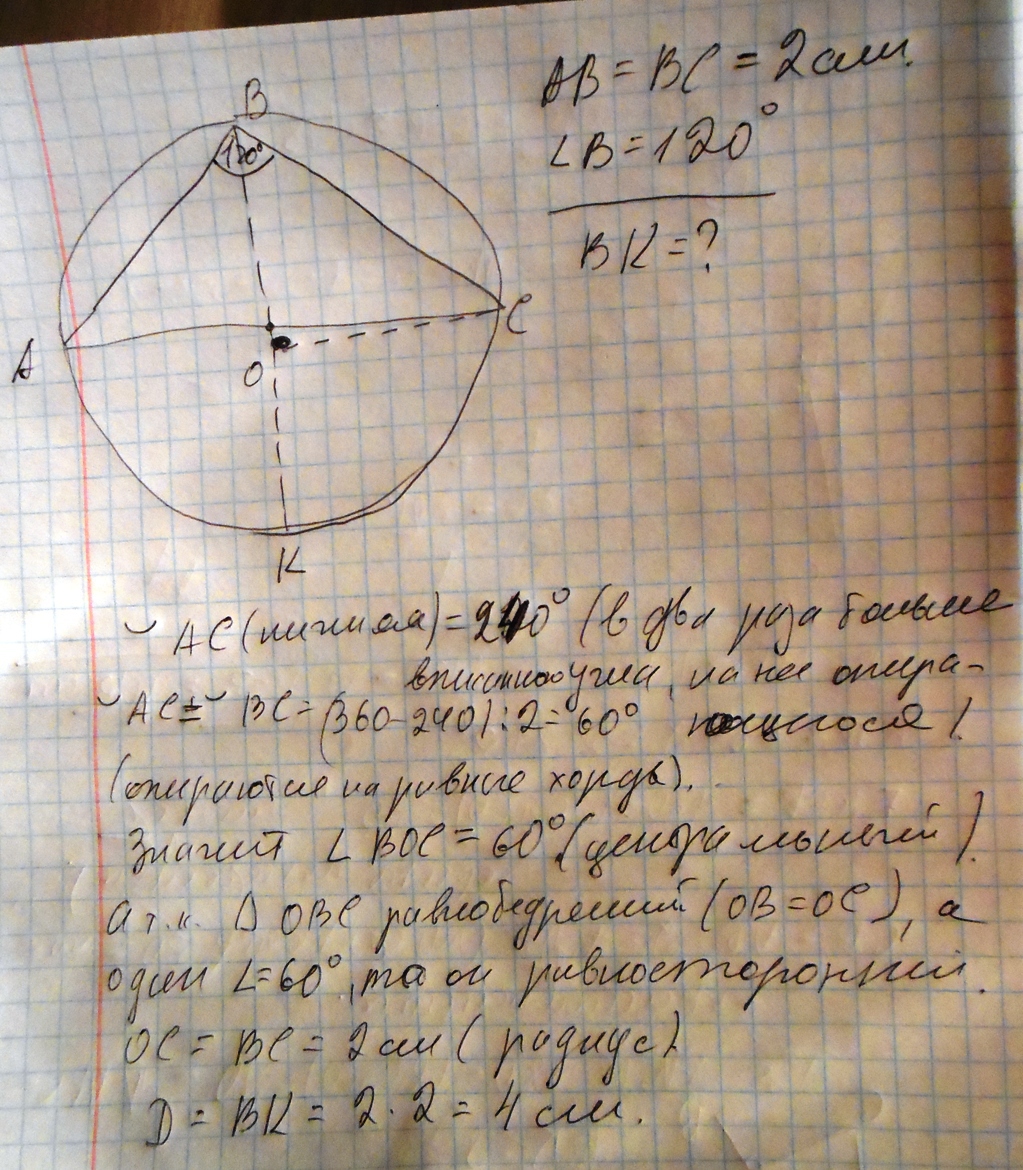 B
120°
A
C
O
K
AB = BC = 2 см.
∠B = 120°
BK = ?
◡ AC (нижняя) = 240° (в два раза больше
вписанного угла, на нее опира-
ющегося).
◡ AB = ◡ BC = (360 - 240) : 2 = 60°
(опираются на равные хорды).
Значит ∠BOC = 60° (центральный).
А т.к. Δ OBC равнобедренный (OB = OC), а
один ∠ = 60°, то он равносторонний.
OC = BC = 2 см (радиус)
D = BK = 2 · 2 = 4 см.